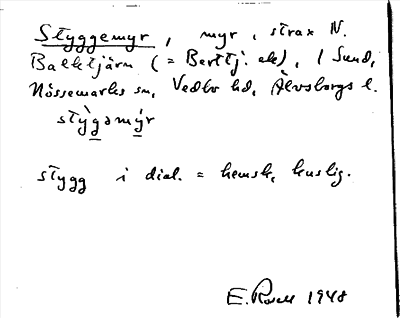 Styggemyr, myr, strax N.
Balktjärn (= Berttj. ek), i Sund,
Nössemarks sn, Vedbo hd, Älvsborgs l.
stỳgəmýr
stygg i dial. = hemsk, kuslig.
E. Rosell 1948